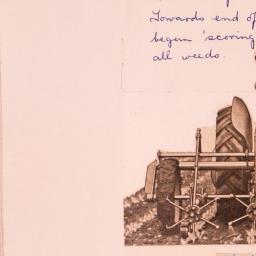 Towards end of
begun 'scoring
all weeds.